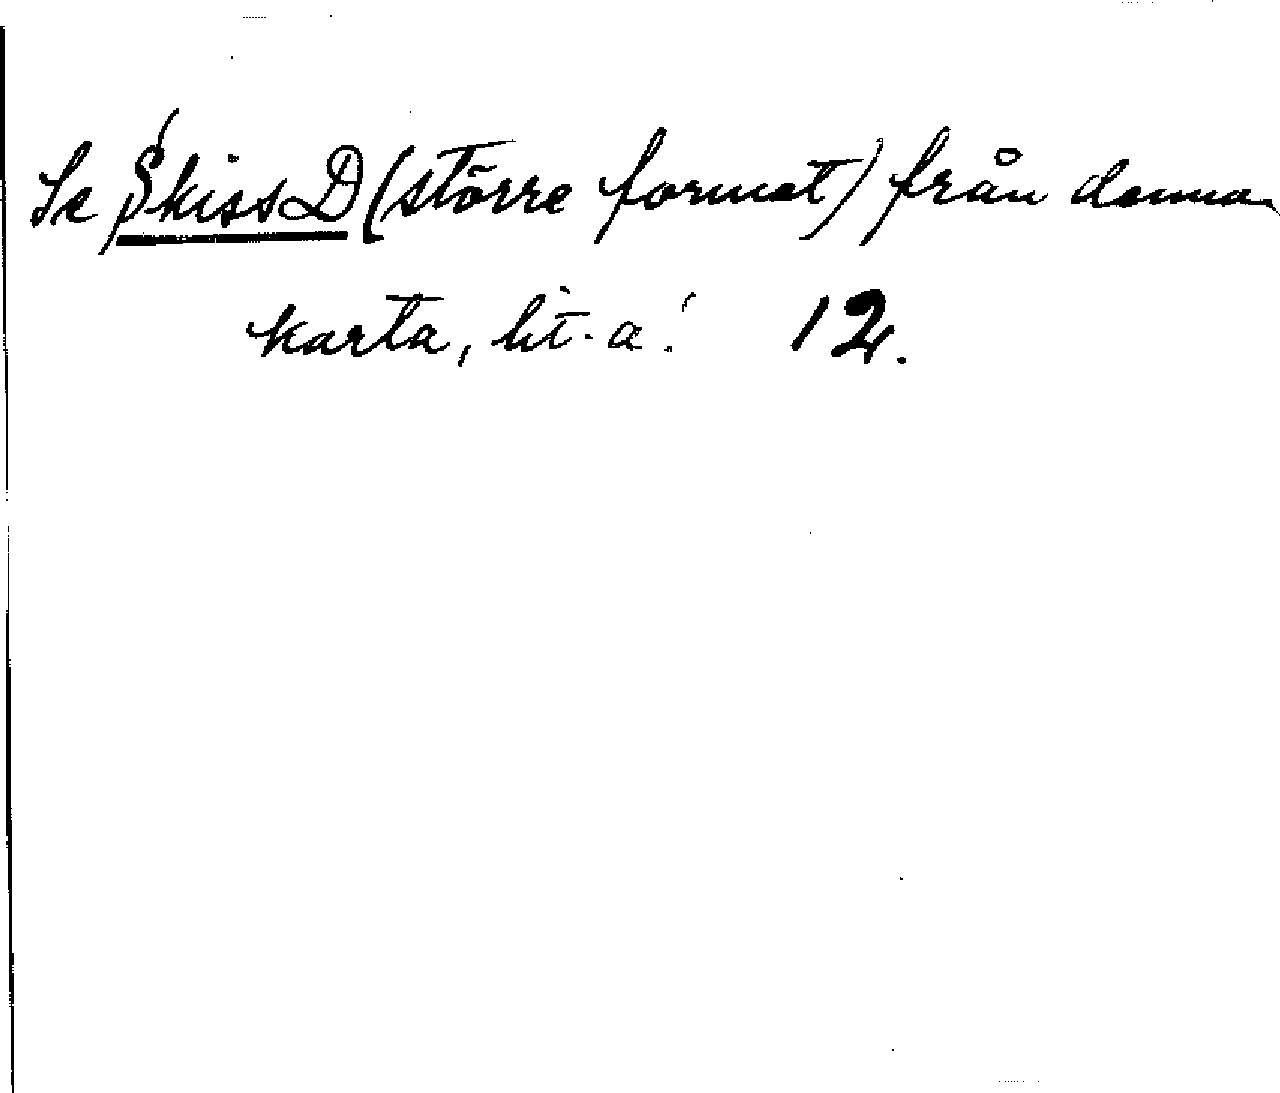 Se Skiss D (större format) från denna
karta, lit. a! 12.